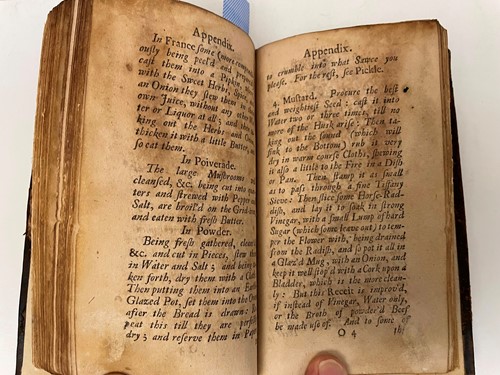 Appendix.
In France some (more
ously being peel'd and prepar
cast them into a Pipkin,
with the Sweet Herbs, Spice,
an Onion they stew them in
own Juice, without any other
ter or Liquor at all; and
king out the Herbs and
thicken it with a little Butter,
so eat them.
In Poiverade.
The large Mushrooms
cleansed, &c. being cut into
ters and strewed with Pepper
Salt, are broil'd on the Grid-
and eaten with fresh Butter.
In Powder.
Being fresh gathered, clean
&c. and cut in Pieces, stew
in Water and Salt; and being
ken forth, dry them with a
Then putting them into an
Glazed Pot, set them into the
after the Bread is drawn:
peat this till they are
dry; and reserve them in
Appendix.
to crumble into what Sawce you
please. For the rest, see Pickle.
4. Mustard. Procure the best
and weightiest Seed: cast it into
Water two or three times, till no
more of the Husk arise: Then ta-
king out the sound (which will
sink to the Bottom) rub it very
dry in warm course Cloths, shewing
it also a little to the Fire in a Dish
or Pan. Then stamp it as small
as to pass through a fine Tiffany
Sieve: Then slice some Horse-Rad-
dish, and lay it to soak in strong
Vinegar, with a small Lump of hard
Sugar (which some leave out) to tem-
per the Flower with, being drained
from the Radish, and so pot it all in
a Glaz'd Mug, with an Onion, and
keep it well stop'd with a Cork upon a
Bladder, which is the more clean-
ly: But this Receit is improv'd,
if instead of Vinegar, Water only,
or the Broth of powder'd Beef
be made use of. And to some of
O 4 th